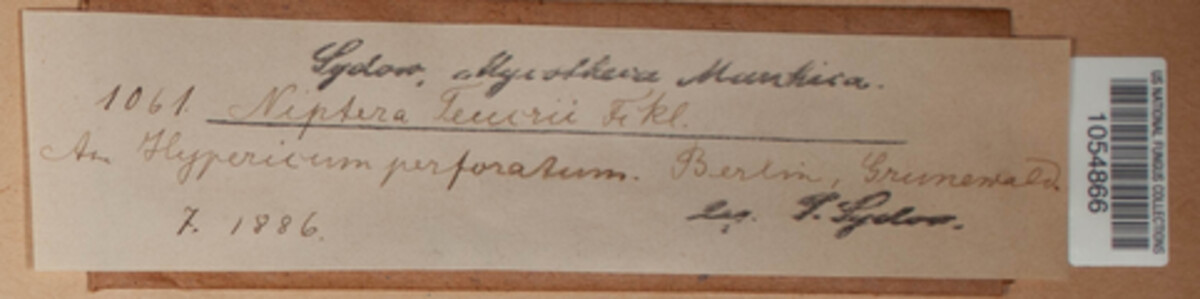 Sydow, Mycotheca Marchica.
1061. Niptera Teucrii Fckl.
An Hypericum perforatum. Berlin, Grunewald.
7. 1886. leg. P. Sydow.
US NATIONAL FUNGUS COLLECTIONS
1054866